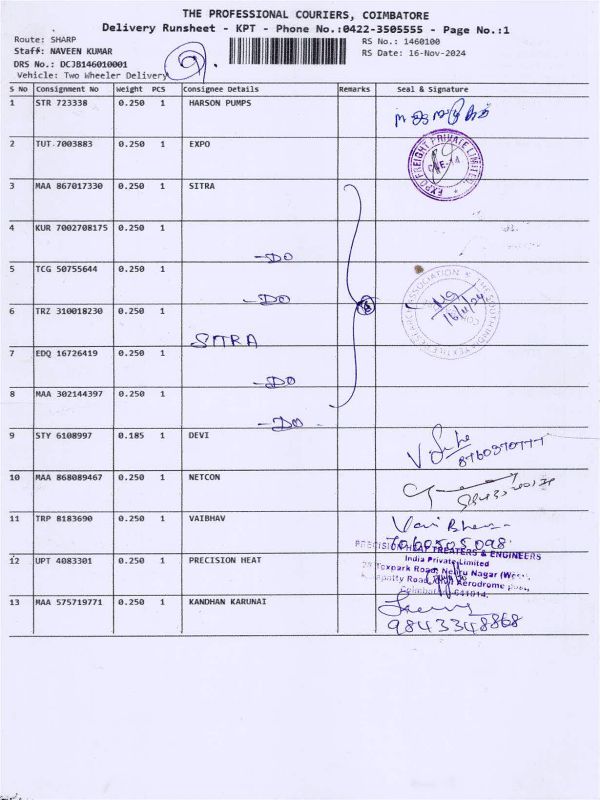 THE PROFESSIONAL COURIERS, COIMBATORE
Delivery Runsheet - KPT - Phone No.:0422-3505555 - Page No.:1
Route: SHARP
RS No.: 1460100
Staff: NAVEEN KUMAR
RS Date: 16-Nov-2024
DRS No.: DCJB146010001
Vehicle: Two Wheeler Delivery
S No Consignment No Weight PCS Consignee Details Remarks Seal & Signature
1 STR 723338 0.250 1 HARSON PUMPS
2 TUT 7003883 0.250 1 EXPO
EXPO FREIGHT PRIVATE LIMITED
3 MAA 867017330 0.250 1 SITRA
4 KUR 7002708175 0.250 1
-DO
5 TCG 50755644 0.250 1
-DO
16/11/24
6 TRZ 310018230 0.250 1
SITRA
7 EDQ 16726419 0.250 1
-DO
8 MAA 302144397 0.250 1
-DO
9 STY 6108997 0.185 1 DEVI
10 MAA 868089467 0.250 1 NETCON
11 TRP 8183690 0.250 1 VAIBHAV
PRECISION HEAT TREATERS & ENGINEERS
India Private Limited
12 UPT 4083301 0.250 1 PRECISION HEAT
Texpark Road, Nehru Nagar
Road, Aerodrome
Coimbatore 641014.
13 MAA 575719771 0.250 1 KANDHAN KARUNAI
9843348868